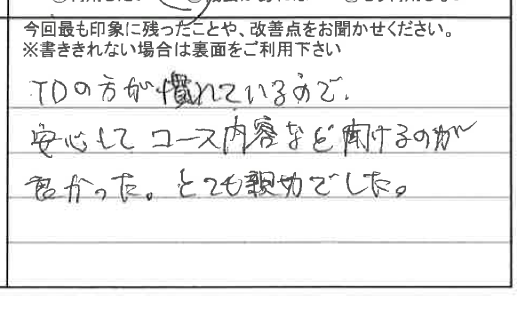 今回最も印象に残ったことや、改善点をお聞かせください。
※書ききれない場合は裏面をご利用下さい
TDの方が慣れているので、
安心して コース内容など聞けるのが
良かった。とても親切でした。